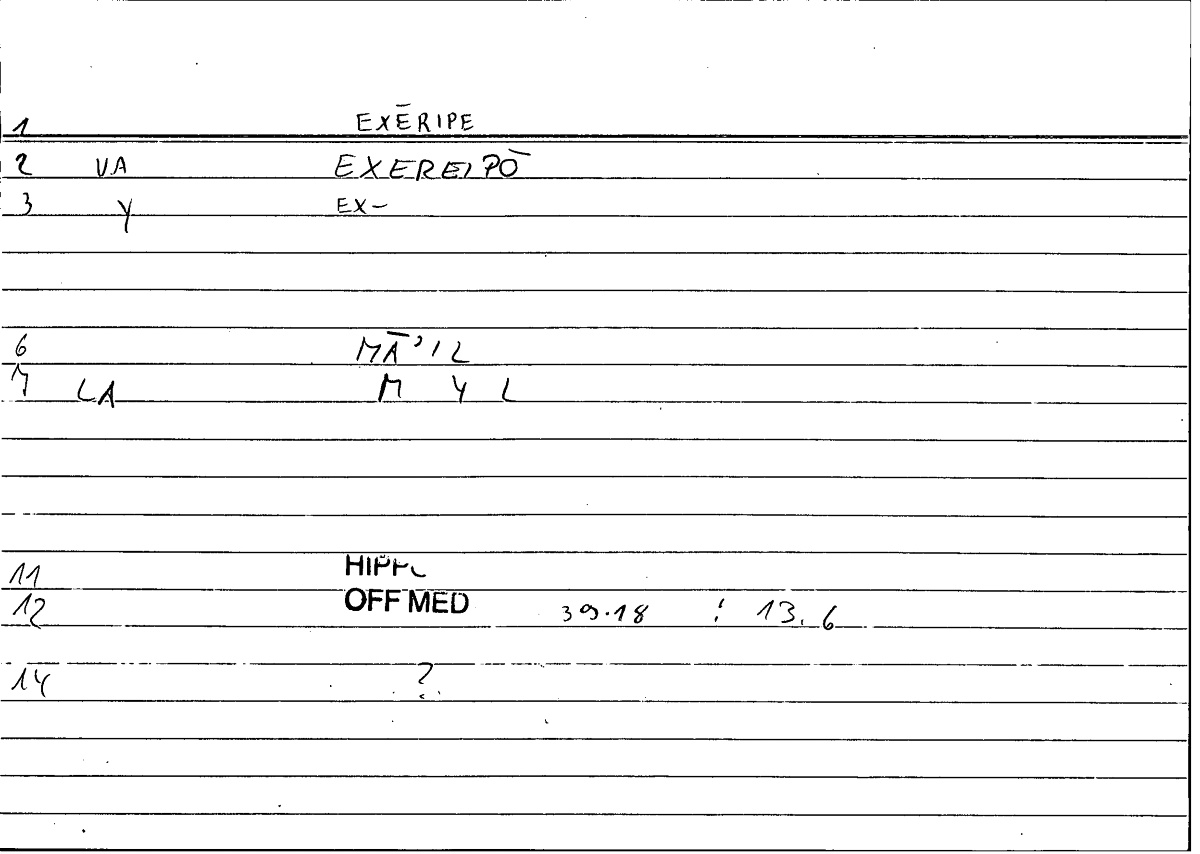 1 EXĒRIPE
2 VA EXEREIPŌ
3 Y EX-
6 MĀ'IL
7 LA M Y L
11
12 OFF MED 39.18 : 13.6
14 ?